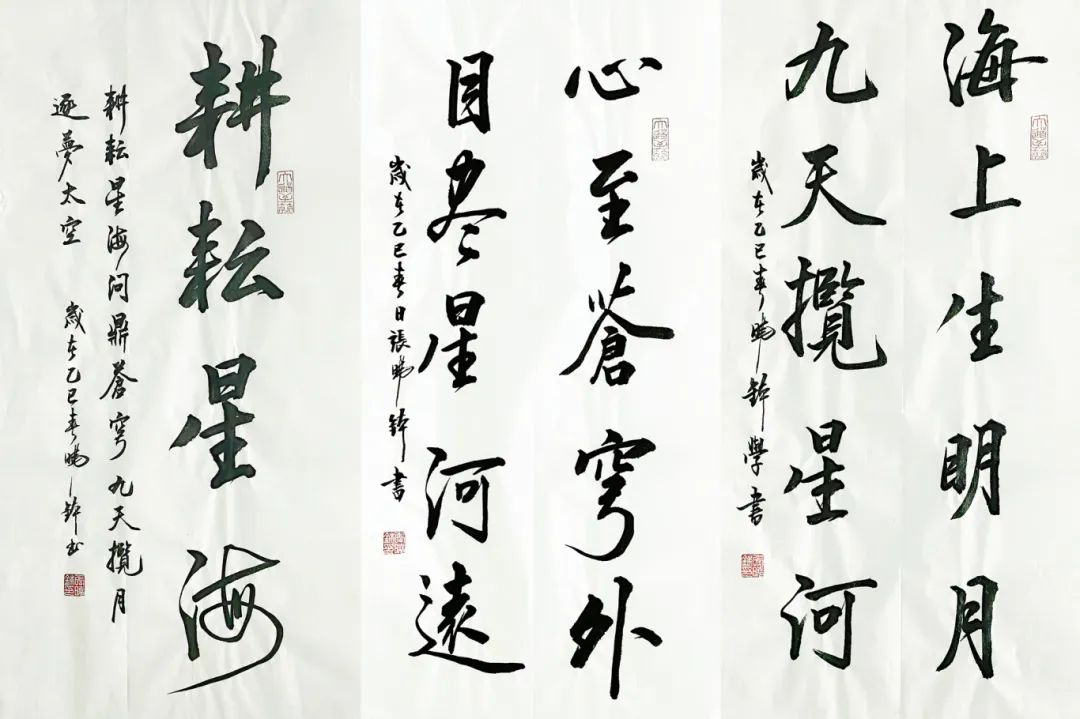 海上生明月
九天攬星河
歲在乙巳春暘鈰學書
心至蒼穹外
目尽星河遠
歲在乙巳春日張暘鈰書
耕耘星海
耕耘星海问鼎蒼穹九天攬月
逐夢太空 歲在乙巳春暘鈰书